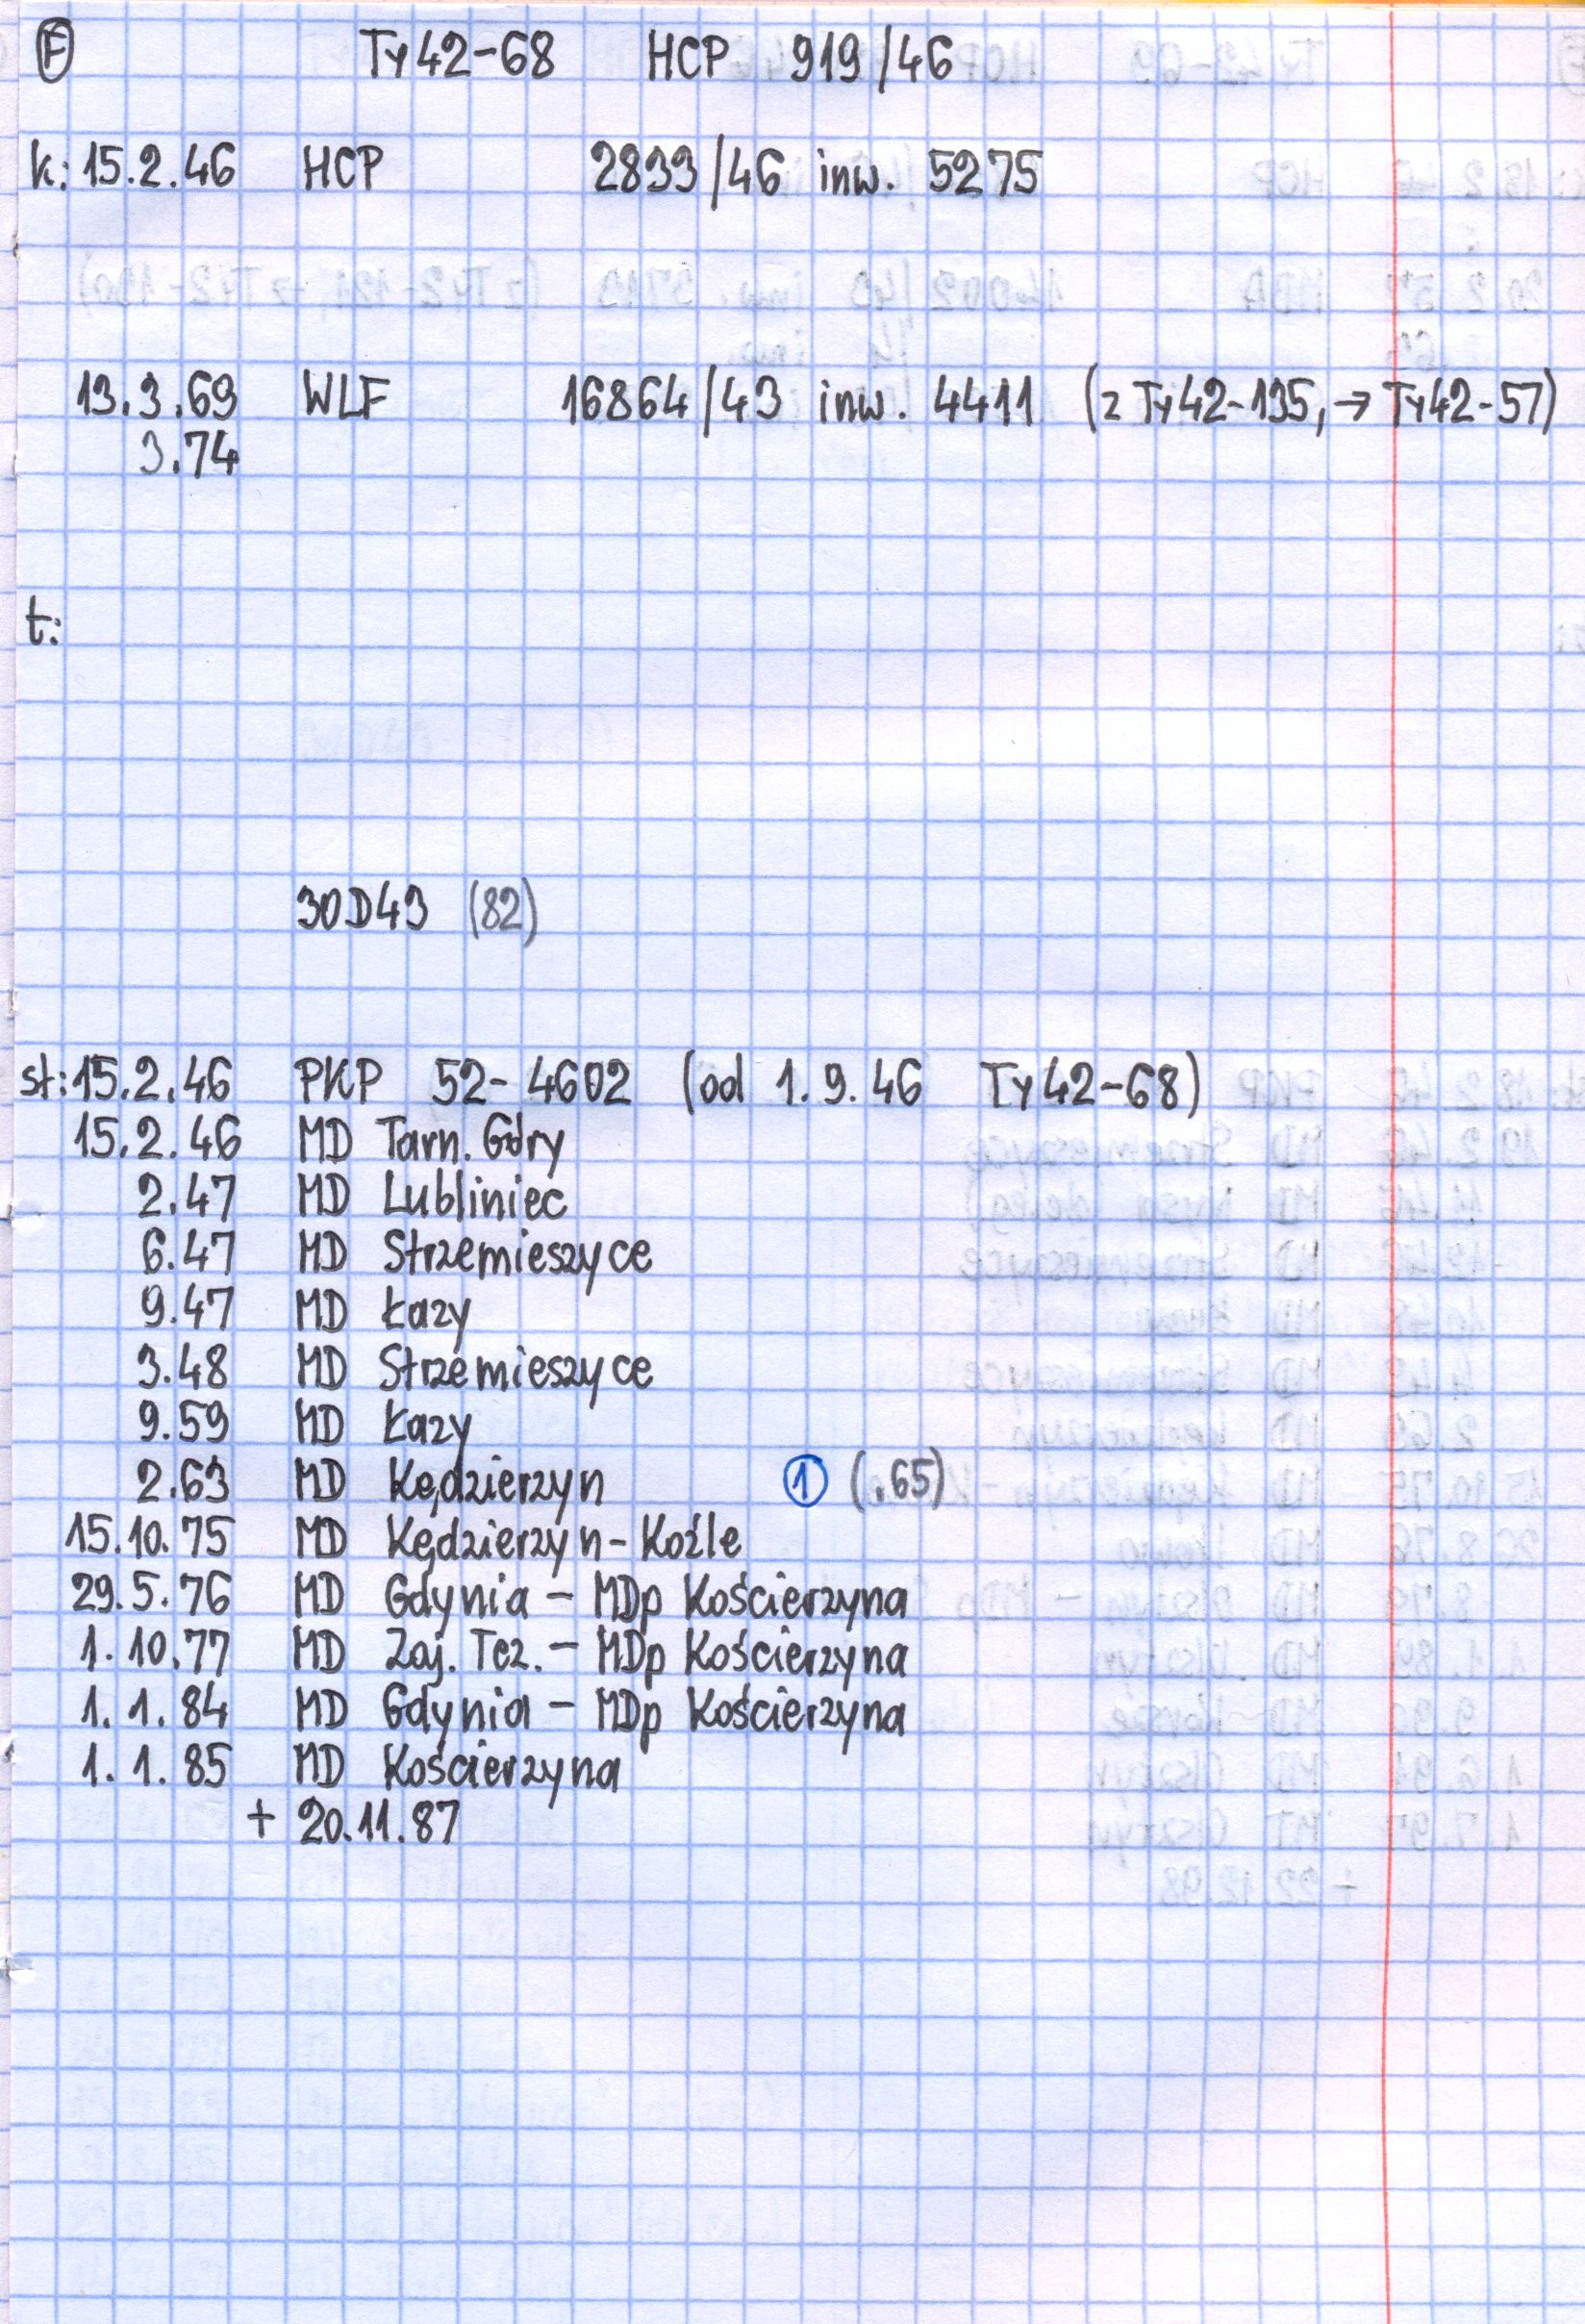 F Ty42-68 HCP 919/46
k: 15.2.46 HCP 2833/46 inw. 5275
13.3.69 WLF 16864/43 inw. 4411 (z Ty42-135, → Ty42-57)
3.74
t:
30D43 (82)
st: 15.2.46 PKP 52-4602 (od 1.9.46 Ty42-68)
15.2.46 MD Tarn. Góry
2.47 MD Lubliniec
6.47 MD Strzemieszyce
9.47 MD Łazy
3.48 MD Strzemieszyce
9.59 MD Łazy
2.63 MD Kędzierzyn 1 (.65)
15.10.75 MD Kędzierzyn-Koźle
29.5.76 MD Gdynia - MDp Kościerzyna
1.10.77 MD Zaj. Tcz. - MDp Kościerzyna
1.1.84 MD Gdynia - MDp Kościerzyna
1.1.85 MD Kościerzyna
+ 20.11.87